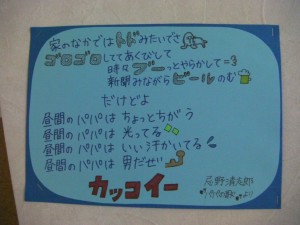 家のなかではトドみたいでさ
ゴロゴロしててあくびして
時々プーっとやらかして
新聞みながらビールのむ
だけどよ
昼間のパパはちょっとちがう
昼間のパパは光ってる
昼間のパパはいい汗かいてる
昼間のパパは男だぜ
カッコイー
忌野清志郎
より